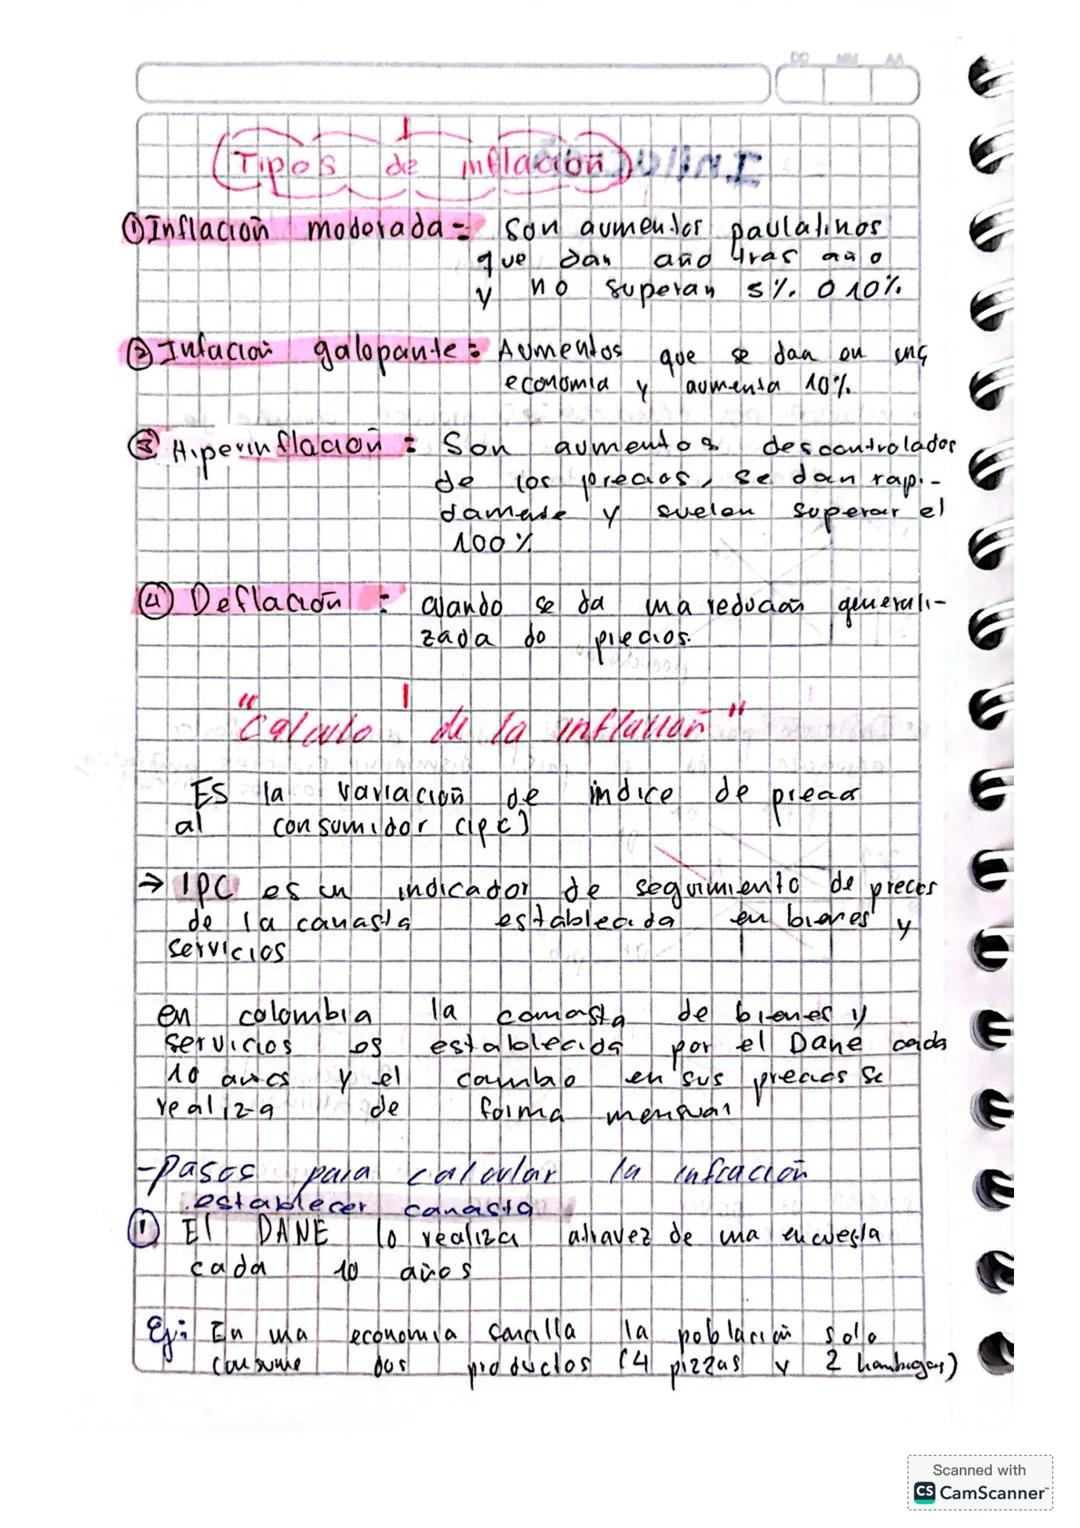 DD MM AA
Tipos de inflación
① Inflación moderada = Son aumentos paulatinos
que dan año tras año
y no superan 5% o 10%.
② Infacion galopante = Aumentos que se dan en una
economia y aumenta 10%.
③ Hiperinflación : Son aumentos descontrolados
de los precios, se dan rapi-
damente y suelen superar el
100%
④ Deflación : cuando se da una reducción generali-
zada de precios.
"calculo de la inflación"
ES la variación de indice de precio
al consumidor (ipc)
→ IPC es un indicador de seguimiento de preces
de la canasta establecida en bienes y
servicios
en colombia la camasta de bienes y
servicios es establecida por el Dane cada
10 años y el cambio en sus precios se
realiza de forma mensual
-pasos para calcular la infración
establecer canasta
① El DANE lo realiza atravez de una encuesta
cada 10 años
Ej: En una economia sencilla la población solo
consume dos productos (4 pizzas y 2 hambugas)
Scanned with
CS CamScanner